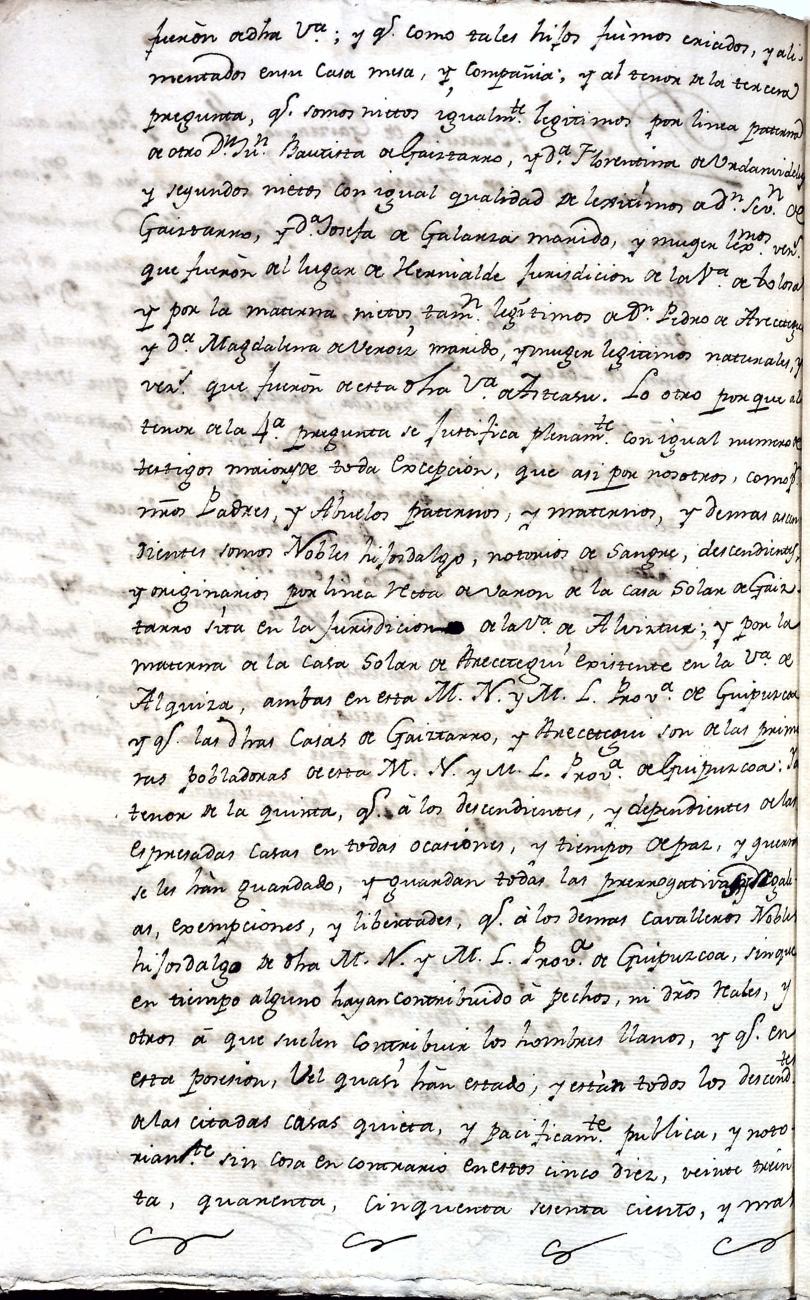 fueròn de dha Va; y qe. como tales hijos fuimos criados, y ali-
mentados en su Casa mesa, y Compañia; y al tenor de la tercera
pregunta, qe. somos nietos igualmte. legitimos por linea paterna
de otro Dn. Jun. Bautista de Gaiztarro, y Da. Florentina de
y segundos nietos con igual qualidad de lexitimos de Dn. Sevn. de
Gaiztarro, y Da. Josefa de Galarza marido, y muger lexmos. vens.
que fueròn del lugar de Hernialde Jurisdicion de la Va. de tolosa
y por la materna nietos tamn. legitimos de Dn. Pedro de Arecetegui
y Da. Magdalena de Veroiz marido, y muger legitimos naturales, y
vens. que fueròn de esta dha Va. de Asteasu. Lo otro porque al
tenor de la 4a. pregunta se Justifica plenamte. con igual numero de
testigos maiores de toda Excepcion, que asi por nosotros, como pr.
nr̃os Padres, y Abuelos paternos, y maternos, y demas ascen
dientes somos Nobles hijosdalgo, notorios de Sangre, descendientes,
y originarios por linea recta de varon de la casa Solar de Gaiz-
tarro sita en la Jurisdicion de la Va. de Alviztur; y por la
materna de la Casa Solar de Arecetegui existente en la Va. de
Alquiza, ambas en esta M. N. y M. L. Prova. de Guipuzcoa
y qe. las dhas Casas de Gaiztarro, y Arecetegui son de las prime
ras pobladoras de esta M. N. y M. L. Prova. de Guipuzcoa:
tenor de la quinta, qe. à los descendientes, y dependientes de las
espresadas Casas en todas ocasiones, y tiempos de paz, y guerra
se les hàn guardado, y guardan todas las prerrogativas, y regali
as, exempciones, y libertades, qe. à los demas Cavalleros Nobles
hijosdalgo de dha M. N. y M. L. Prova. de Guipuzcoa, sin que
en tiempo alguno hayan contribuido à pechos, ni dr̃os reales, y
otros à que suelen contribuir los hombres llanos, y qe. en
esta posesion, Vel quasi hàn estado, y estàn todos los descendtes.
de las citadas casas quieta, y pacificamte. publica, y noto
riamte. sin cosa en contrario en estos cinco diez, veinte trein
ta, quarenta, Cinquenta sesenta ciento, y mas